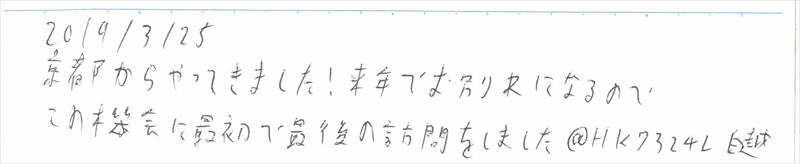 2019/3/25
京都からやってきました！来年でお別れになるので
この機会に最初で最後の訪問をしました @HK7324L